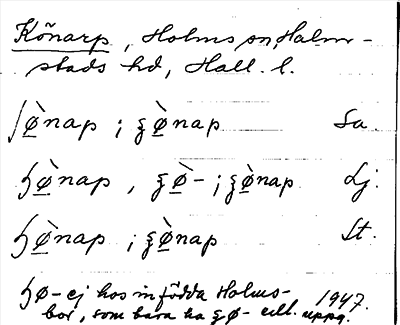 Kõnarp, Holms sn, Halm-
stads hd, Hall. l.
ʃø̲̀nap ; ʂø̲̀nap Sa.
ɧø̲̀nap , ʂø̲̀- ; ʂø̲̀nap Lj.
ɧø̲̀nap ; ʂø̲̀nap St.
ɧø- ej hos infödda Holms-
bor, som bara ha ʂø- enl. uppg. 1947.